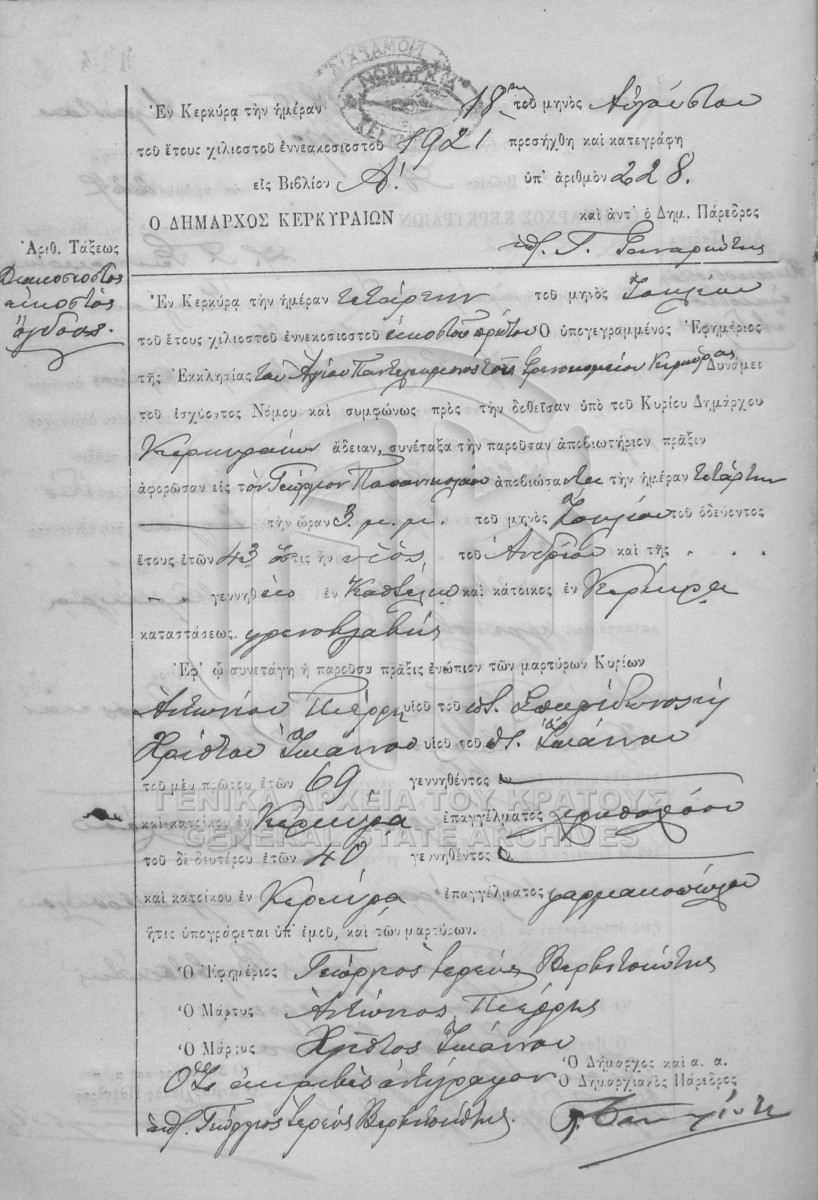 ΝΟΜΑΡΧΙΑ
Ἐν Κερκύρᾳ τὴν ἡμέραν 18ην τοῦ μηνὸς Αὐγούστου
τοῦ ἔτους χιλιοστοῦ ἐννεακοσιοστοῦ 1921 προσήχθη καὶ κατεγράφη
εἰς Βιβλίον Α! ὑπ' ἀριθμὸν 228.
Ο ΔΗΜΑΡΧΟΣ ΚΕΡΚΥΡΑΙΩΝ καὶ ἀντ' ὁ Δημ. Πάρεδρος
Ἀριθ. Τάξεως
Διακοσιοστὸς
εἰκοστὸς
ὄγδοος.
Ἐν Κερκύρᾳ τὴν ἡμέραν τετάρτην τοῦ μηνὸς Ἰουλίου
τοῦ ἔτους χιλιοστοῦ ἐννεκοσιοστοῦ εἰκοστοῦ πρώτου Ὁ ὑπογεγραμμένος Ἐφημέριος
τῆς Ἐκκλητίας τοῦ Ἁγίου Παντελεήμονος τοῦ Φρενοκομείου Κερκύρας Δυνάμει
τοῦ ἰσχύοντος Νόμου καὶ συμφώνως πρὸς τὴν δοθεῖσαν ὑπὸ τοῦ Κυρίου Δημάρχου
Κερκυραίων ἄδειαν, συνέταξα τὴν παροῦσαν ἀποβιωτήριον πρᾶξιν
ἀφορῶσαν εἰς τὸν Γεώργιον Παπανικολάου ἀποβιώσαντα τὴν ἡμέραν τετάρτην
τὴν ὥραν 3 μ.μ. τοῦ μηνὸς Ἰουλίου τοῦ ὁδεύοντος
ἔτους ἐτῶν 43 ὅστις ἦν υἱὸς τοῦ Ἀνδρέου καὶ τῆς . . .
γεννηθεὶς ἐν καὶ κάτοικος ἐν Κέρκυρα
καταστάσεως φρενοβλαβής
Ἐφ' ᾧ συνετάγη ἡ παροῦσα πρᾶξις ἐνώπιον τῶν μαρτύρων Κυρίων
Ἀντωνίου Πιέρρη υἱοῦ τοῦ ποτ. Σπυρίδωνος ἢ
Χρίστου Ἰωάννου υἱοῦ τοῦ ποτ. Ἰωάννου
τοῦ μὲν πρώτου ἐτῶν 69 γεννηθέντος ἐν
ΓΕΝΙΚΑ ΑΡΧΕΙΑ ΤΟΥ ΚΡΑΤΟΥΣ
καὶ κατοίκου ἐν Κερκύρᾳ ἐπαγγέλματος
GENERAL STATE ARCHIVES
τοῦ δὲ δευτέρου ἐτῶν 40 γεννηθέντος
καὶ κατοίκου ἐν Κερκύρᾳ ἐπαγγέλματος φαρμακοπώλου
ἥτις ὑπογράφεται ὑπ' ἐμοῦ, καὶ τῶν μαρτύρων.
Ὁ Ἐφημέριος Γεώργιος ἱερεὺς Βερβιτσιώτης
Ὁ Μάρτυς Ἀντώνιος Πιέρρης
Ὁ Μάρτυς Χρῖστος Ἰωάννου
Ὅτι ἀκριβὲς ἀντίγραφον
Ὁ Δήμαρχος καὶ α. α.
Ὁ Δημαρχιακὸς Πάρεδρος
Γεώργιος Ἱερεὺς Βερβιτσιώτης.